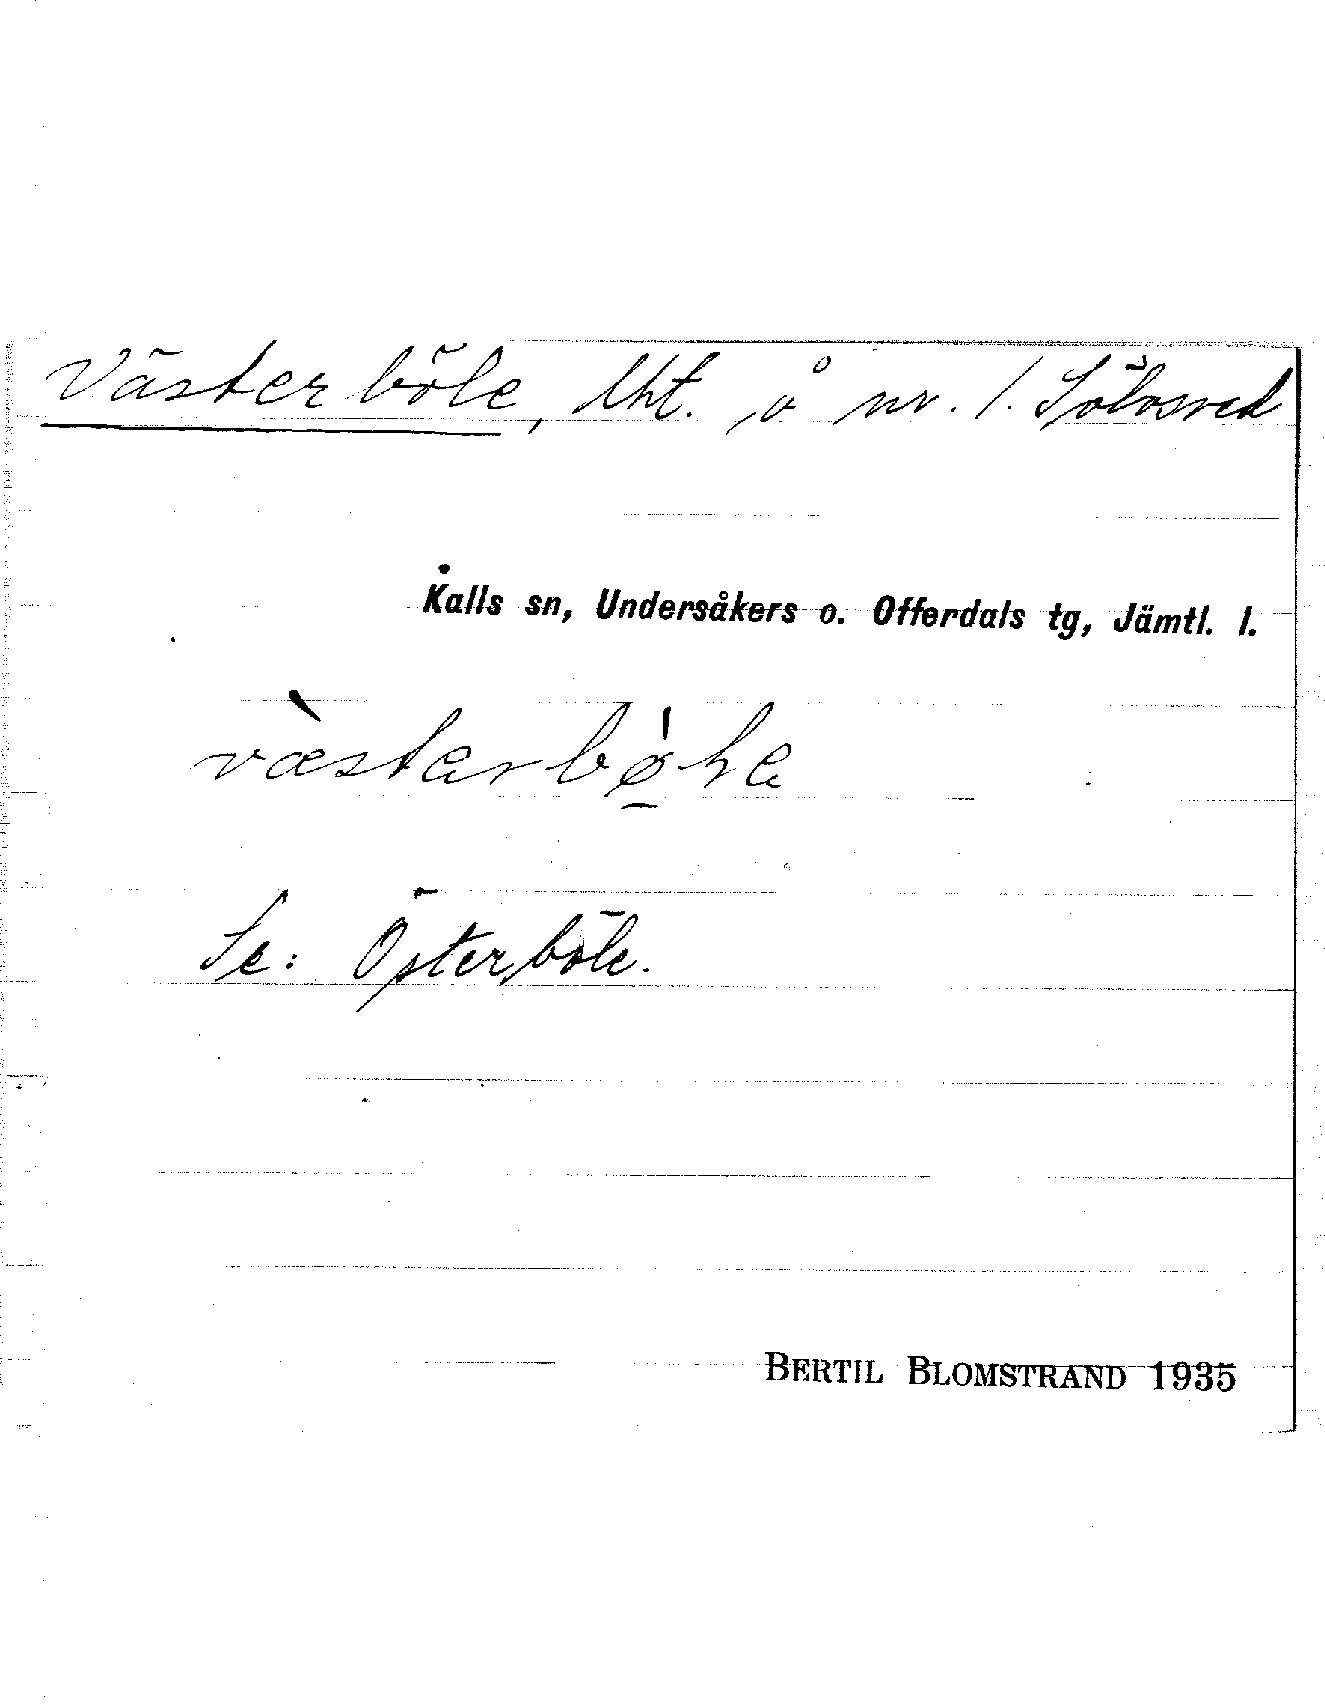 Västerböle, lht. å nr. 1. Sölvsved
Kalls sn, Undersåkers o. Offerdals tg, Jämtl. l.
Se: Österböle.
BERTIL BLOMSTRAND 1935